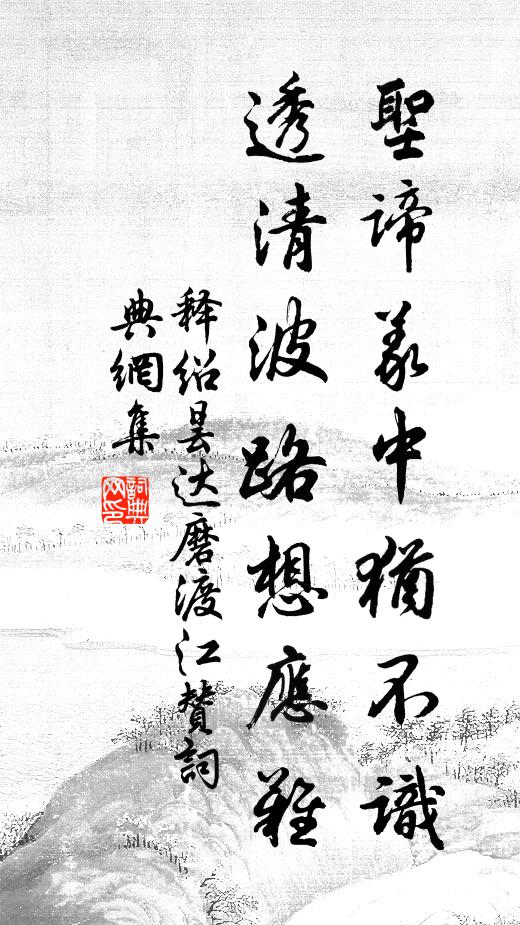 聖諦義中猶不識
透清波路想應難
释绍昙达磨渡江赞詞
典網集
詞典
网印